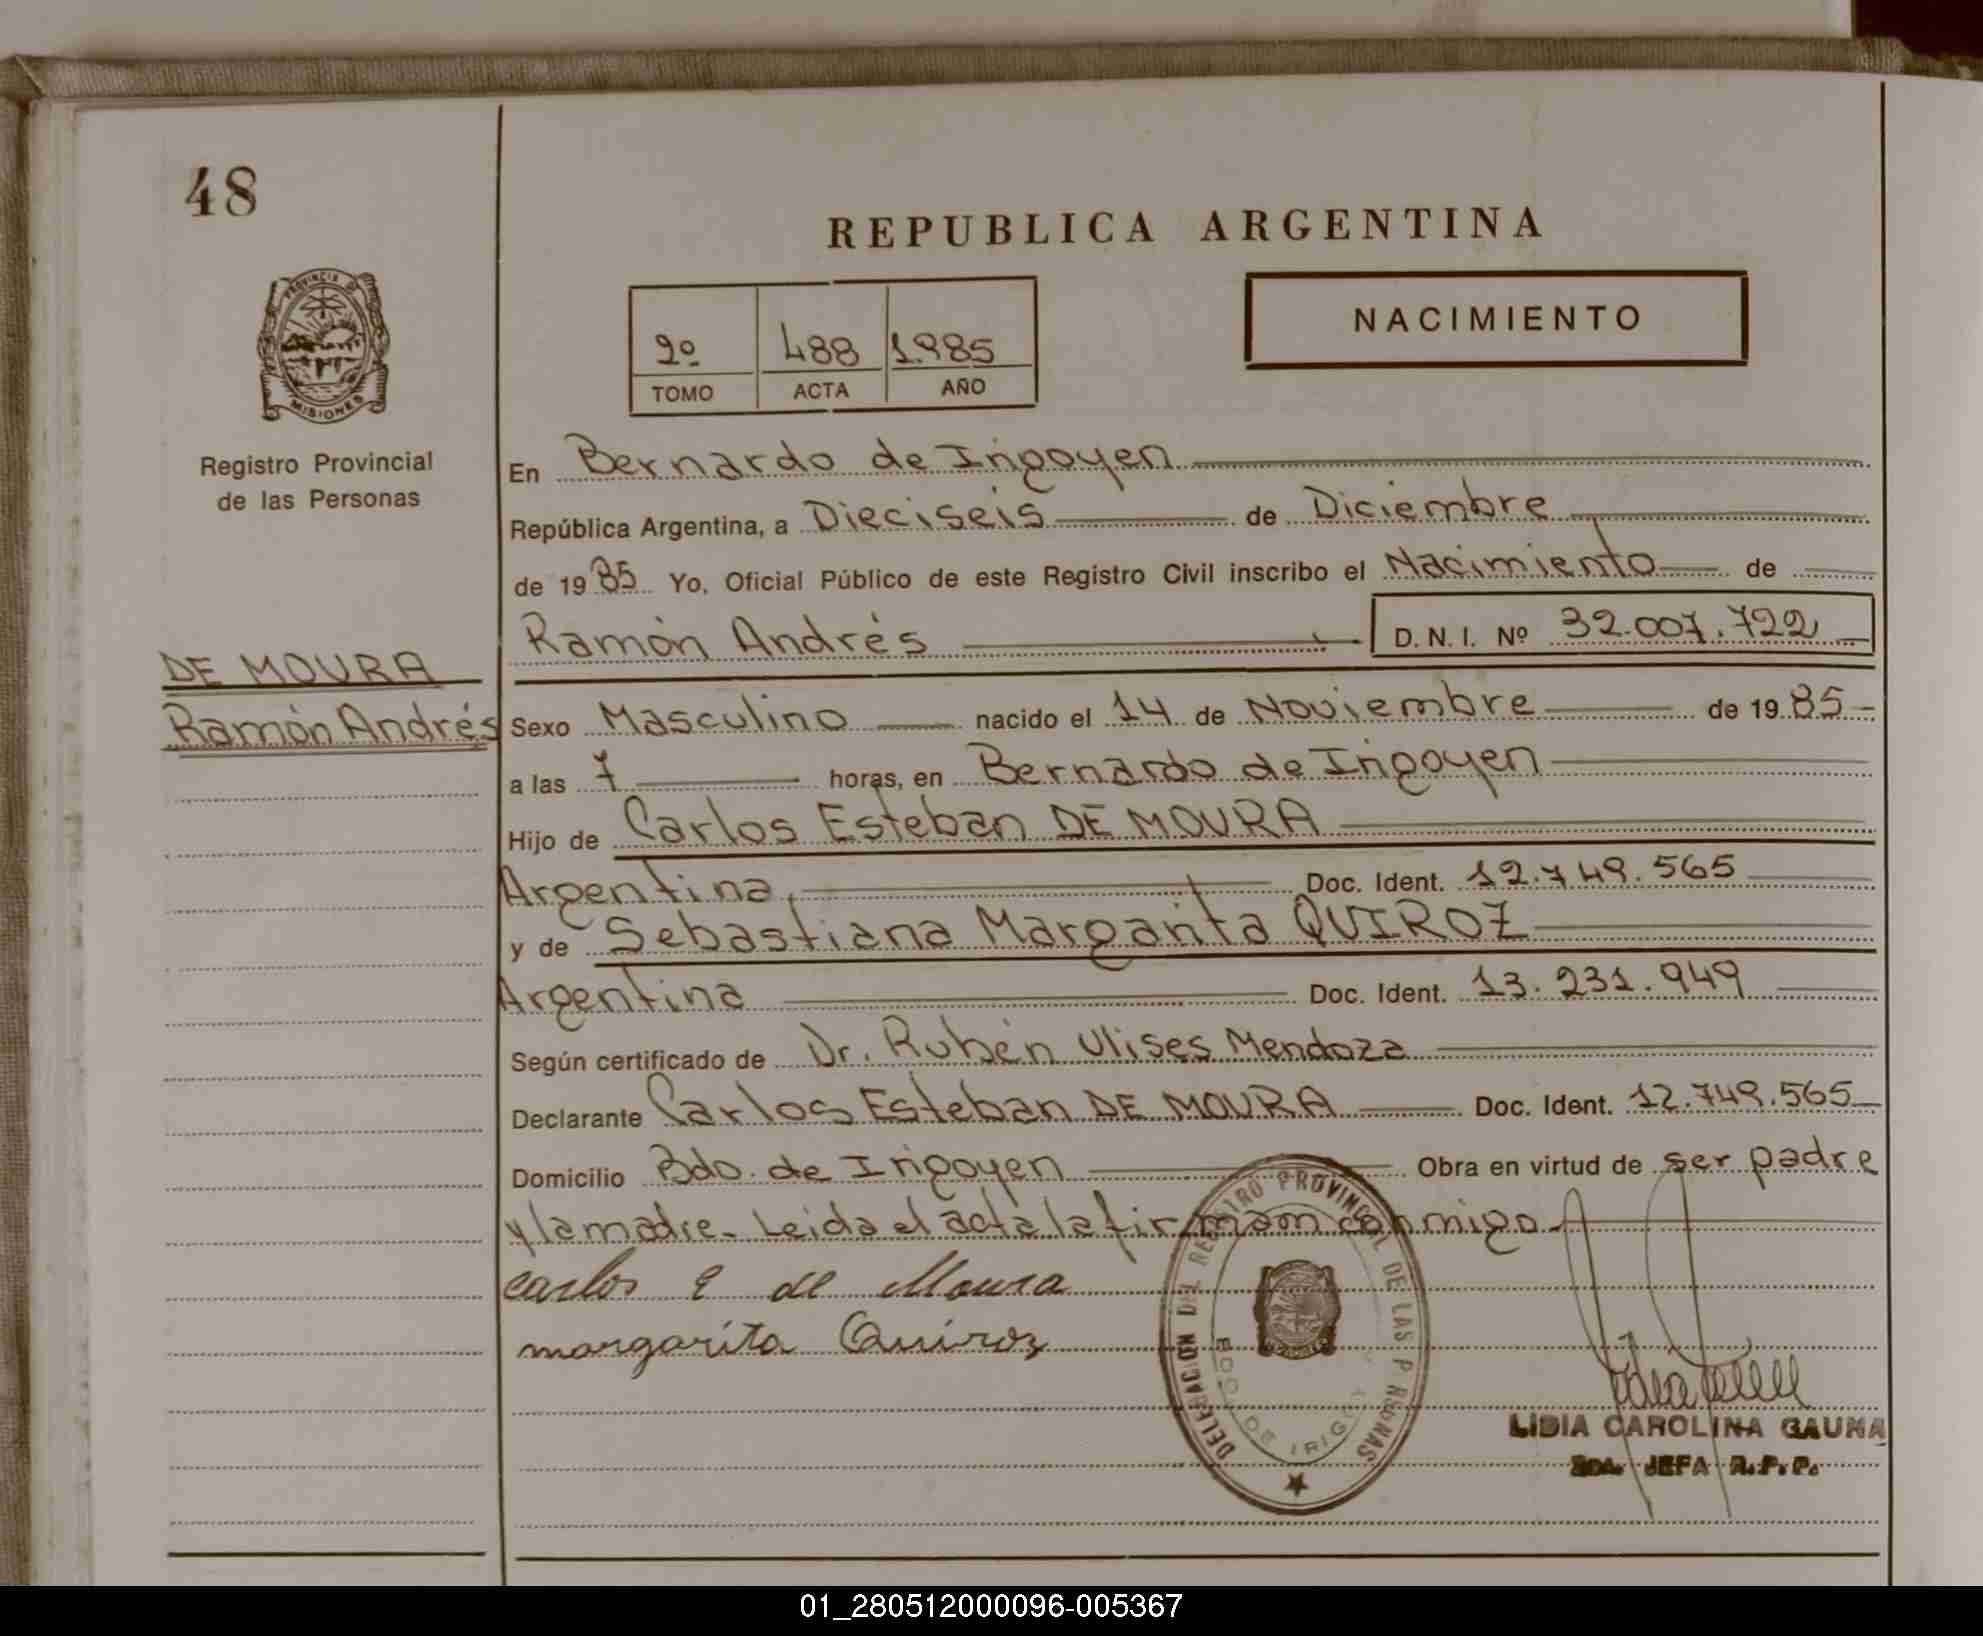 48
REPUBLICA ARGENTINA
PROVINCIA DE
MISIONES
2º 488 1.985
TOMO ACTA AÑO
NACIMIENTO
Registro Provincial
de las Personas
En Bernardo de Irigoyen
República Argentina, a Dieciseis de Diciembre
de 1985 Yo, Oficial Público de este Registro Civil inscribo el Nacimiento de
Ramón Andrés D.N.I. Nº 32.007.722
DE MOURA
Ramón Andrés
Sexo Masculino nacido el 14 de Noviembre de 1985
a las 7 horas, en Bernardo de Irigoyen
Hijo de Carlos Esteban DE MOURA
Argentina, Doc. Ident. 12.749.565
y de Sebastiana Margarita QUIROZ
Argentina Doc. Ident. 13.231.949
Según certificado de Dr. Rubén Ulises Mendoza
Declarante Carlos Esteban DE MOURA Doc. Ident. 12.749.565
Domicilio Bdo. de Irigoyen Obra en virtud de ser padre
y la madre. Leida el acta la firmam conmigo.
carlos E de Moura
margarita Quiroz
DELEGACION DEL REGISTRO PROVINCIAL DE LAS PERSONAS
BDO. DE IRIGOYEN
LIDIA CAROLINA GAUNA
2DA. JEFA R.P.P.
01_280512000096-005367